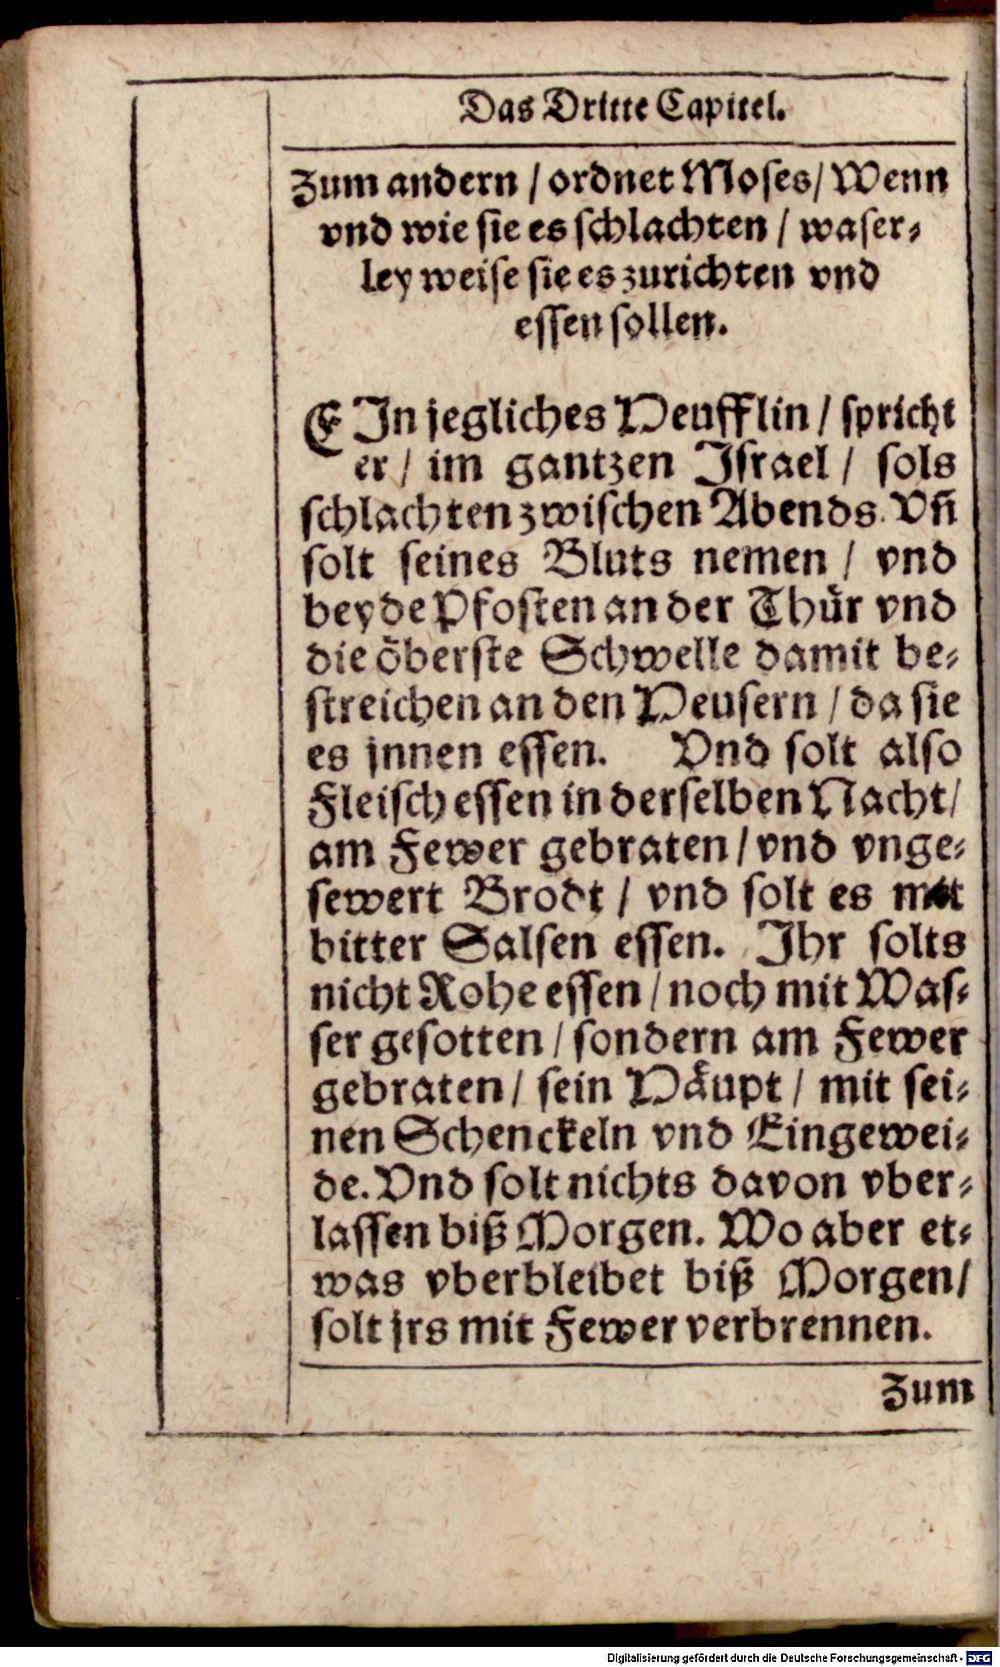 Das Dritte Capitel.
Zum andern / ordnet Moses / Wenn
vnd wie sie es schlachten / waser-
ley weise sie es zurichten vnd
essen sollen.
EIn jegliches Heufflin / spricht
er / im gantzen Israel / sols
schlachten zwischen Abends. Vñ
solt seines Bluts nemen / vnd
beyde Pfosten an der Thür vnd
die öberste Schwelle damit be-
streichen an den Heusern / da sie
es jnnen essen. Vnd solt also
Fleisch essen in derselben Nacht /
am Fewer gebraten / vnd vnge-
sewert Brodt / vnd solt es mit
bitter Salsen essen. Ihr solts
nicht Rohe essen / noch mit Was-
ser gesotten / sondern am Fewer
gebraten / sein Häupt / mit sei-
nen Schenckeln vnd Eingewei-
de. Vnd solt nichts davon vber-
lassen biß Morgen. Wo aber et-
was vberbleibet biß Morgen /
solt jrs mit Fewer verbrennen.
Zum
Digitalisierung gefördert durch die Deutsche Forschungsgemeinschaft - DFG